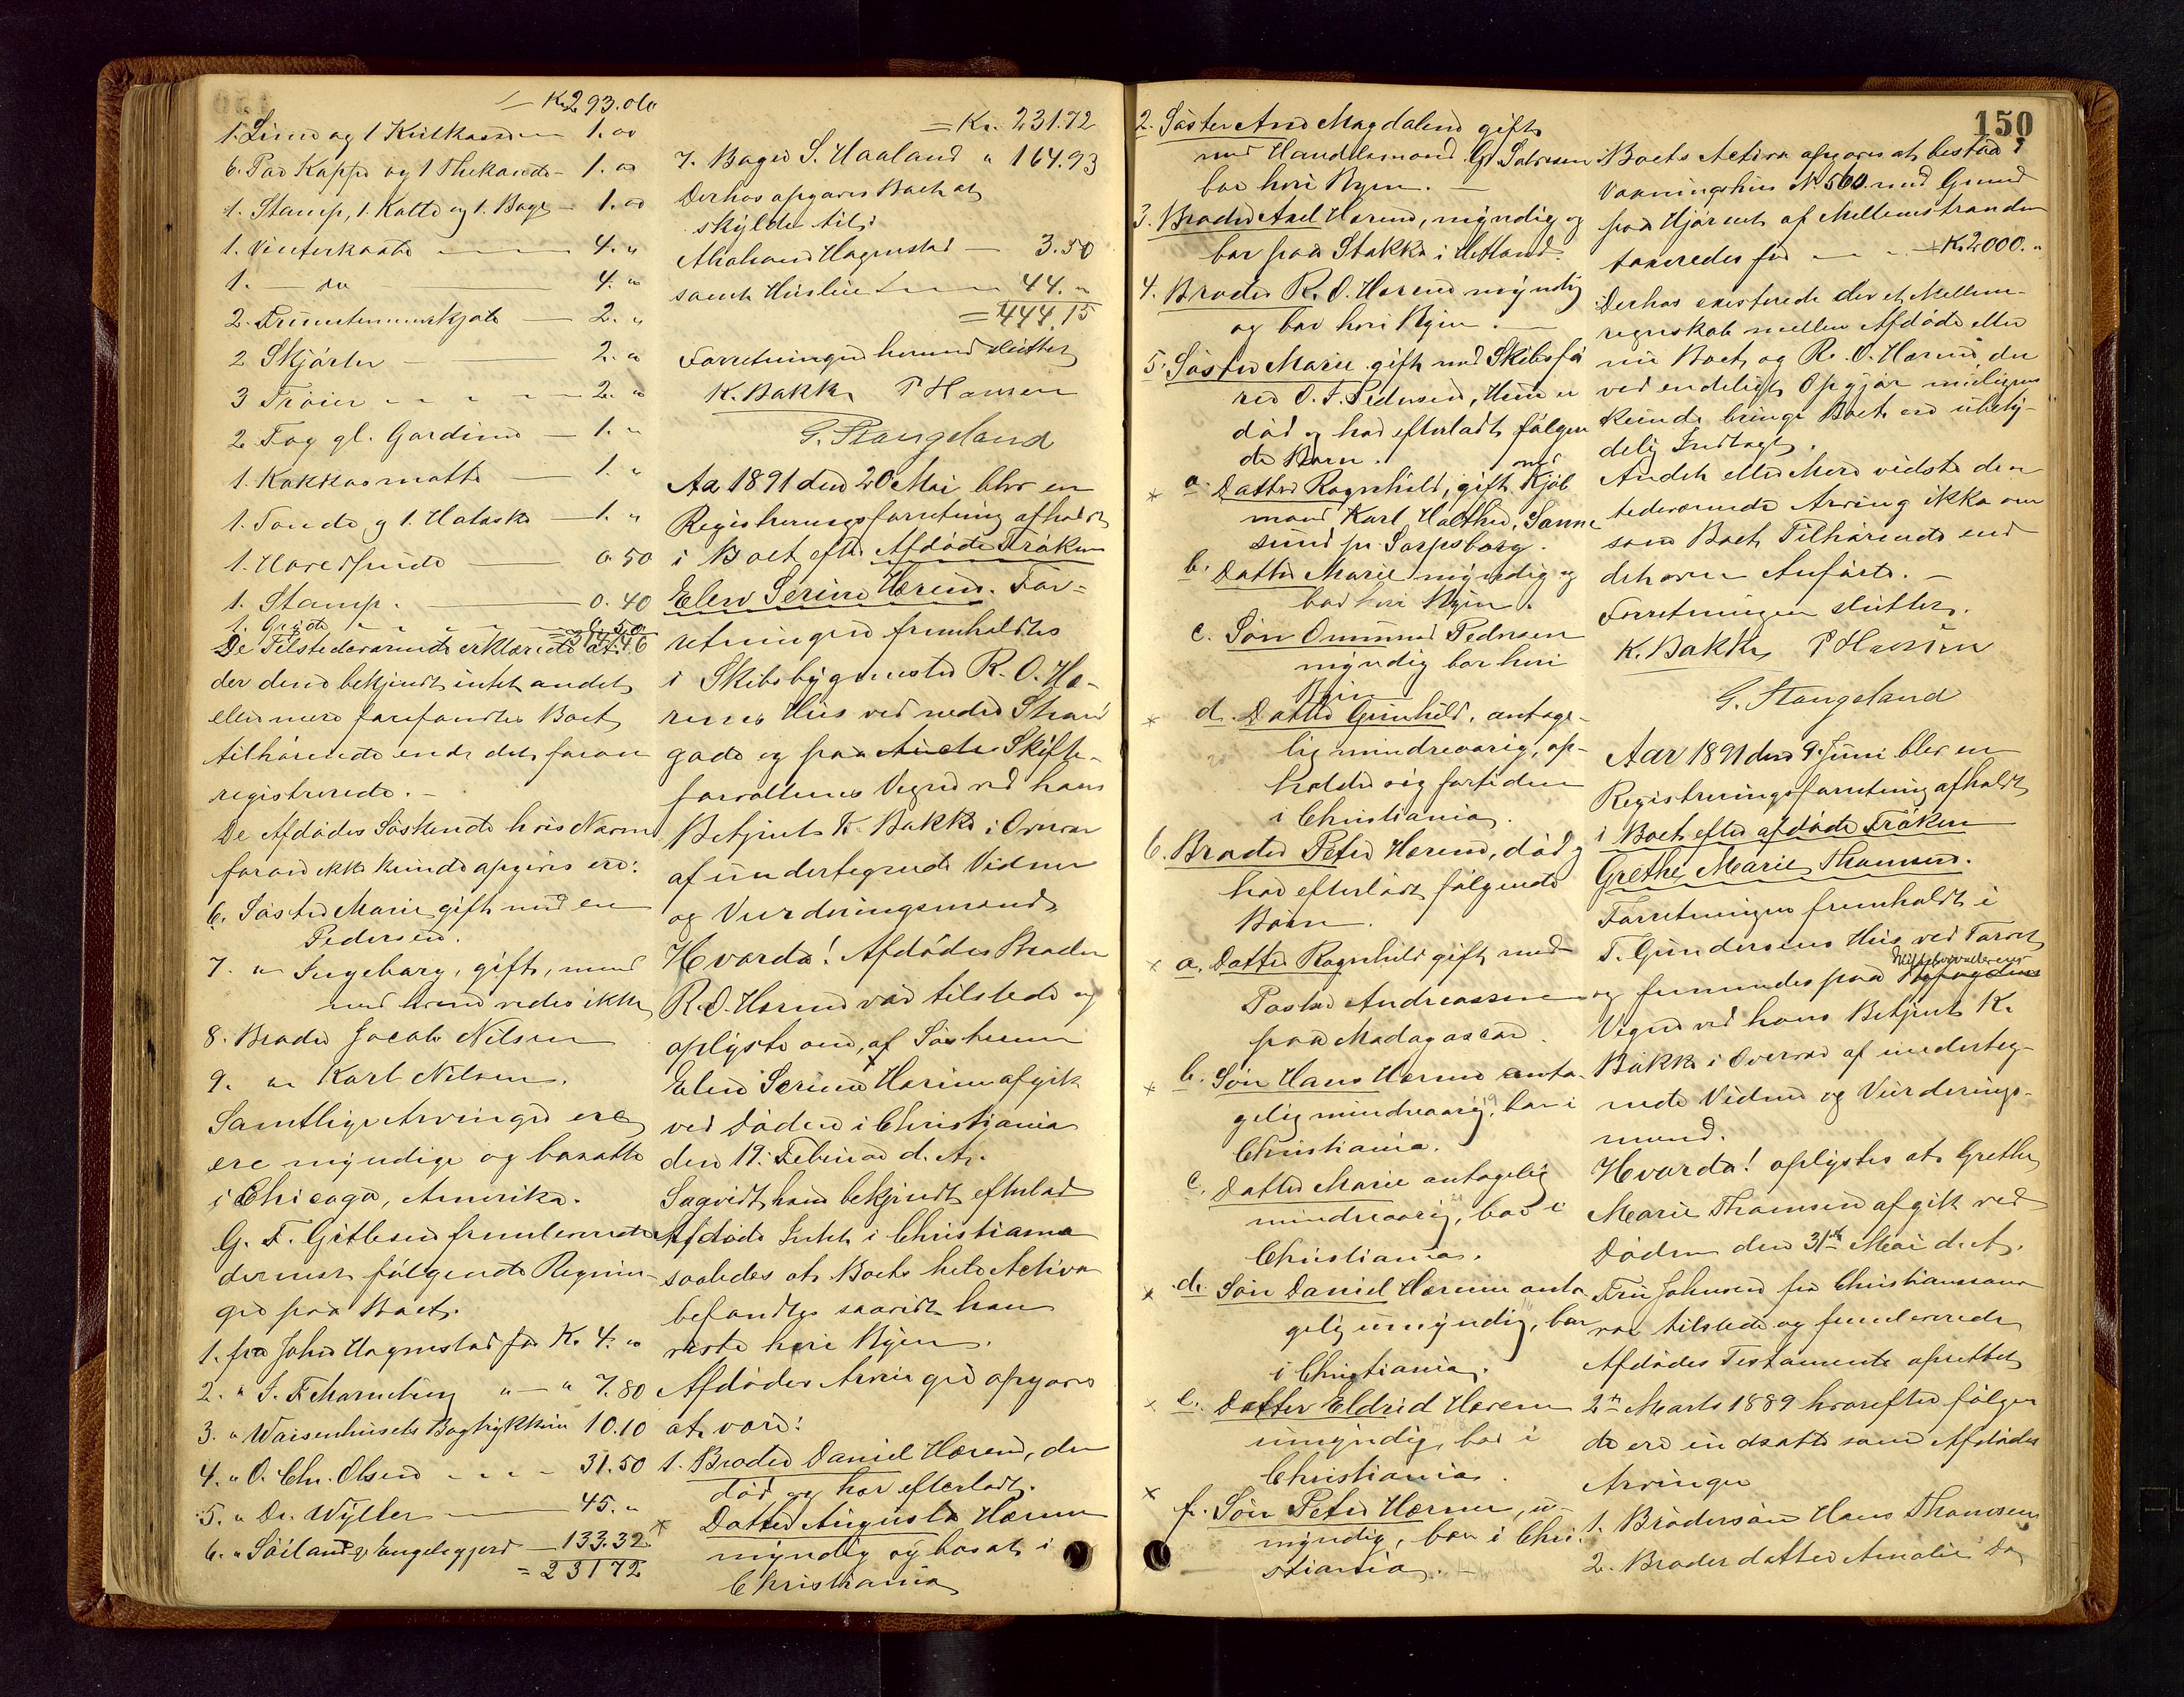 = Kr. 293.06
1. Sime og 1 Kulkasse 1.00
6. Par Kopper og 1 Thekande - 1.00
1. Stamp, 1. Kalte og 1. Bage - 1.00
1. Vinterkaabe 4. "
1. — do 4. "
2. Trumtømmerskjole 2. "
2 Skjørter 2. "
3 Trøier 2. "
2 Fag gl. Gardiner 1. "
1. Kokkosmatte 1. "
1. Tønde og 1. 1. "
1. Hovedpude 0.50
1. Stamp. 0.40
1. Gryde 0.50
De Tilstedeværende erklærede at
der dem bekjendt intet andet
eller mere forefandtes Boet
tilhørende end det foran
registrerede. –
De Afdødes Søskende hvis Navne
foran ikke kunde opgives ere:
6. Søster Marie gift med en
Pedersen.
7. " Ingeborg, gift, men
med hvem vides ikke
8. Broder Jacob Nilsen
9. " Karl Nilsen.
Samtlige Arvinger ere
ere myndige og bosatte
i Chicago, Amerika.
G. T. Gitlesen fremleverede
dernest følgende Regnin-
ger paa Boet.
1. fra John Hagenstad for Kr. 4. "
2. " " — " 7.80
3. " Waisenhusets Bogtrykkeri 10.10
4. " O. Chr. Olsen 31.50
5. " Dr. Wyller 45. "
6. " Søiland & Engelsgjerd 133.32
= 231 72
= Kr. 231.72
7. Bager S. Haaland " 164.93
Derhos opgaves Boet at
skylde til:
Abraham Hagenstad 3.50
samt Husleie 44. "
= 444.15
Forretningen hermed sluttet
K. Bakke P Hansen
G. Stangeland
Aar 1891 den 20 Mai blev en
Registreringsforretning afholdt
i Boet efter Afdøde Frøken
Elen Serine Hærem. For=
retningen fremholdtes
i Skibsbygmester R. O. Hæ-
rems Hus ved nedre Strand
gade og paa Skifte-
forvalterens Vegne ved hans
Betjent K. Bakke i Overvær
af undertegnede Vidner
og Vurderingsmænd,
Hvorda! Afdødes Broder
R. O. Hærem var tilstede og
oplyste om, at Søsteren
Elen Serine Hærem afgik
ved Døden i Christiania
den 19. Februar d. A.
Saavidt ham bekjendt efterlod
Afdøde Intet i Christiania
saaledes at Boets hele Activa
befandtes saavidt han
vidste heri Byen.
Afdødes Arvinger opgaves
at være:
1. Broder Daniel Hærem, der
død og har efterladt.
x Datter Augusta Hærem
myndig og bosat i
Christiania
150
2. Søster Ane Magdalene gift
med Handelsmand G. Salvesen
bor heri Byen. –
3. Broder Axel Hærem, myndig og
bor paa Stokka i Hetland.
4. Broder R. O. Hærem myndig
og bor heri Byen. –
5. Søster Marie gift med Skibsfø
rer O. T. Pedersen, Hun er
død og har efterladt følgen
de Børn.
x a. Datter Ragnhild, gift med Kjøb
mand Karl Halther, Sanne
sund pr. Sarpsborg.
b. Datter Marie myndig og
bor heri Byen.
c. Søn Ommund Pedersen
myndig bor heri
Byen
x d. Datter Gunhild, antage-
lig mindreaarig, op-
holder sig fortiden
i Christiania.
6. Broder Peter Hærem, død og
har efterladt følgende
Børn.
x a. Datter Ragnhild gift med
Pastor Andreassen
paa Madagascar.
x b. Søn Hans Hærem anta-
gelig mindreaarig, bor i
Christiania.
c. Datter Marie antagelig
mindreaarig, bor i
Christiania.
x d. Søn Daniel Hærem anta
gelig umyndig, bor
i Christiania.
x e. Datter Eldrid Hærem
umyndig, bor i
Christiania.
x f. Søn Peter Hærem, u-
myndig, bor i Chri-
stiania. –
Boets Activa opgaves at bestaa i
Vaaningshus No. 560 med Grund
paa Hjørnet af Mellemstranden
taxeredes for Kr. 2000. "
Derhos existerede der et Mellem-
regnskab mellem Afdøde eller
nu Boet, og R. O. Hærem der
ved endeligt Opgjør muligens
kunde bringe Boet en ubety-
delig Indtægt.
Andet eller Mere vidste den
tilstedeværende Arving ikke om
som Boet Tilhørende end
det oven Anførte. –
Forretningen sluttet.
K. Bakke P Hansen
G. Stangeland
Aar 1891 den 9. Juni blev en
Registreringsforretning afholdt
i Boet efter afdøde Frøken
Grethe Marie Thomsen.
Forretningen fremholdt i
T. Gundersens Hus ved Torvet
og fremmødes paa Skifteforvalterens
Vegne ved hans Betjent K.
Bakke i Overvær af underteg-
nede Vidner og Vurderings-
mænd.
Hvorda! oplystes at Grethe
Marie Thomsen afgik ved
Døden den 31te Mai d. A.
Fru Johnsen fra Christianssand
var tilstede og fremleverede
Afdødes Testamente oprettet
2den Marts 1889 hvorefter følgen
de ere indsatte som Afdødes
Arvinger
1. Brodersøn Hans Thomsen
2. Broderdatter Amalie